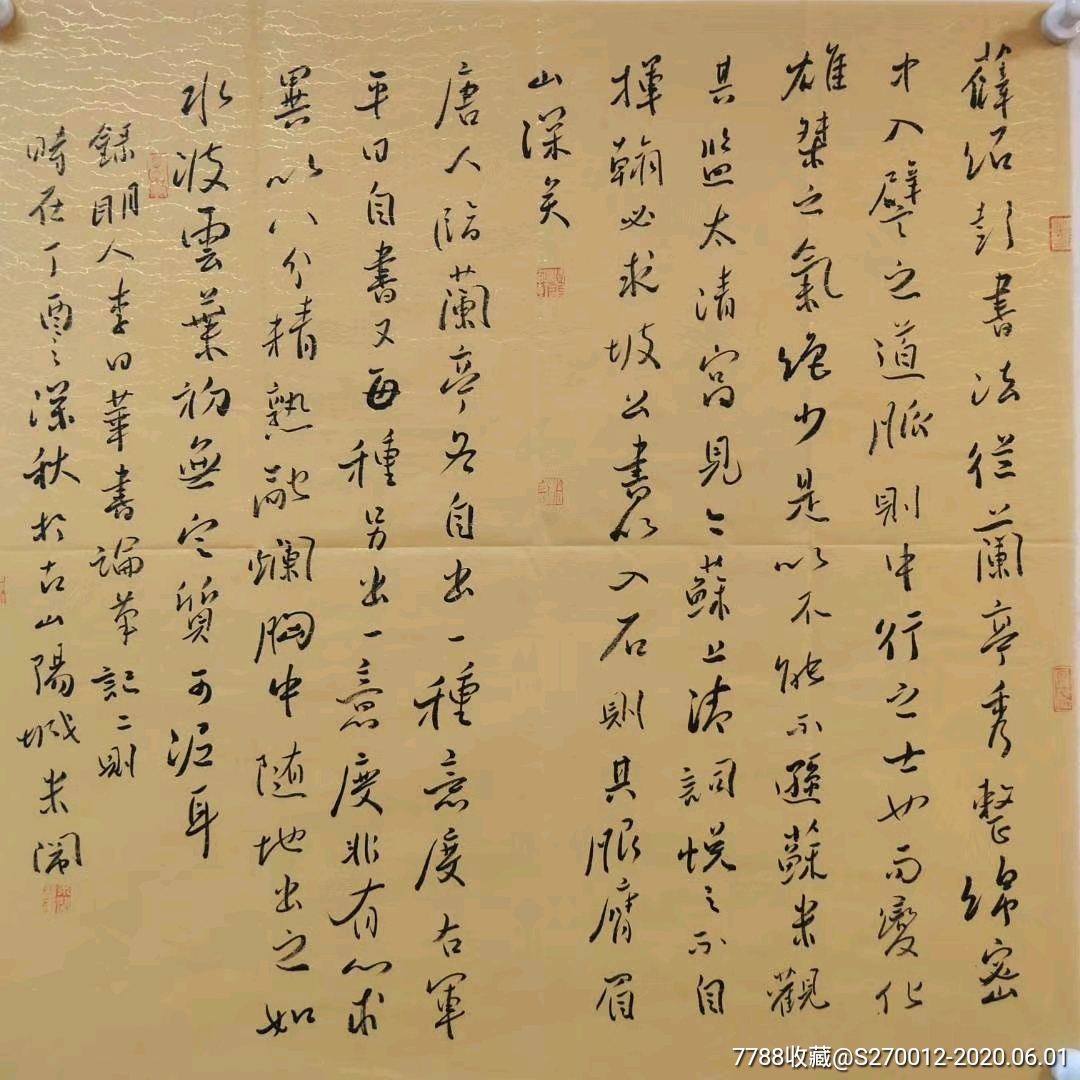 薛紹彭書法從蘭亭秀整綿密
中入譬之道脈則中行之士也而變化
雄桀之氣絕少是以不能不遜蘇米觀
其監太清宮見之蘇上清詞悅之不自
揮翰必求坡公書以入石則其服膺眉
山深矣
唐人臨蘭亭各自出一種意度右軍
平日自書又每種另出一意度非有心求
異以八分精熟融爛胸中隨地出之如
水波雲葉初無定質可泥耳
錄明人李日華書論筆記二則
時在丁酉之深秋於古山陽城米鬧
7788收藏@S270012-2020.06.01